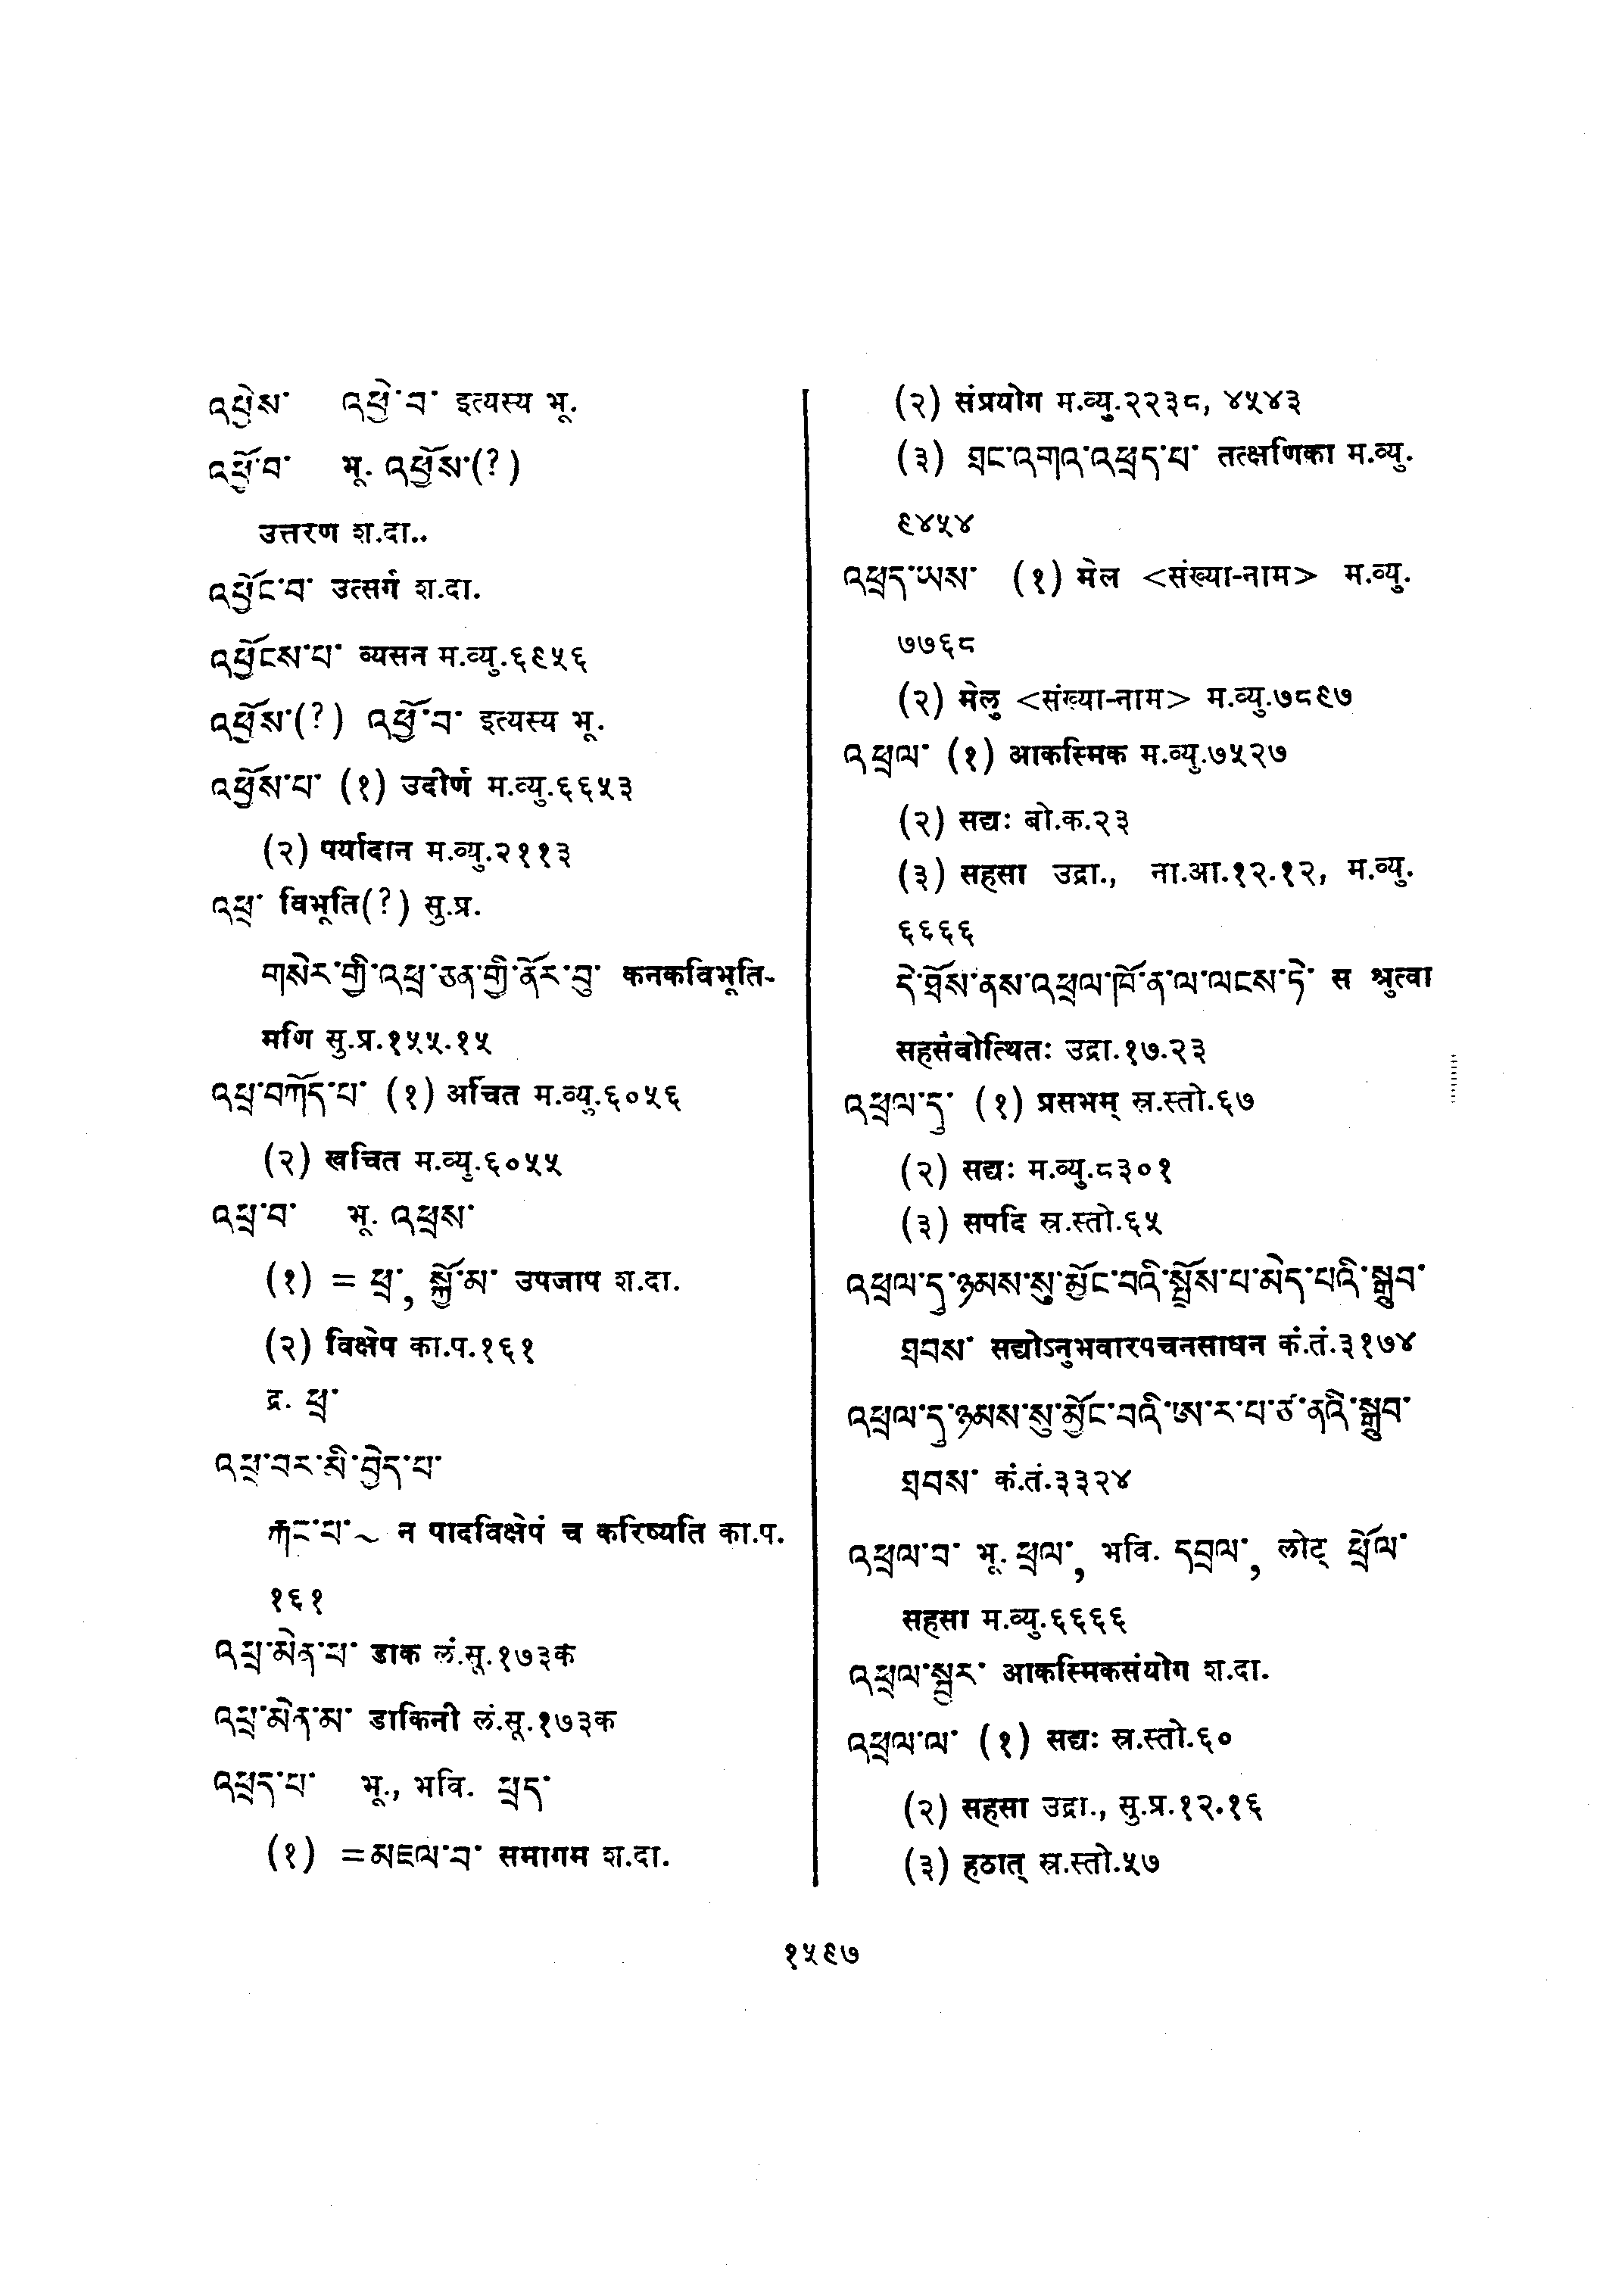 འཕྱེས་ འཕྱེ་བ་ इत्यस्य भू.
འཕྱོ་བ་ भू. འཕྱོས་(?)
उत्तरण श.दा..
འཕྱོང་བ་ उत्सर्ग श.दा.
འཕྱོངས་པ་ व्यसन म.व्यु.६९५६
འཕྱོས་(?) འཕྱོ་བ་ इत्यस्य भू.
འཕྱོས་པ་ (१) उदीर्ण म.व्यु.६६५३
(२) पर्यादान म.व्यु.२११३
འཕྲ་ विभूति(?) सु.प्र.
གསེར་གྱི་འཕྲ་ཅན་གྱི་ནོར་བུ་ कनकविभूति-
मणि सु.प्र.१५५.१५
འཕྲ་བཀོད་པ་ (१) अर्चित म.व्यु.६०५६
(२) खचित म.व्यु.६०५५
འཕྲ་བ་ भू. འཕྲས་
(१) = ཕྲ་, སྐྱོ་མ་ उपजाप श.दा.
(२) विक्षेप का.प.१६१
द्र. ཕྲ་
འཕྲ་བར་མི་བྱེད་པ་
རྐང་པ་~ न पादविक्षेपं च करिष्यति का.प.
१६१
འཕྲ་མེན་པ་ डाक लं.सू.१७३क
འཕྲ་མེན་མ་ डाकिनी लं.सू.१७३क
འཕྲད་པ་ भू., भवि. ཕྲད་
(१) =མཇལ་བ་ समागम श.दा.
(२) संप्रयोग म.व्यु.२२३८, ४५४३
(३) ཐང་འགའ་འཕྲད་པ་ तत्क्षणिका म.व्यु.
९४५४
འཕྲད་ཡས་ (१) मेल <संख्या-नाम> म.व्यु.
७७६८
(२) मेलु <संख्या-नाम> म.व्यु.७८९७
འཕྲལ་ (१) आकस्मिक म.व्यु.७५२७
(२) सद्यः बो.क.२३
(३) सहसा उद्रा., ना.आ.१२.१२, म.व्यु.
६६६६
དེ་ཐོས་ནས་འཕྲལ་ཁོ་ན་ལ་ལངས་ཏེ་ स श्रुत्वा
सहसैवोत्थितः उद्रा.१७.२३
འཕྲལ་དུ་ (१) प्रसभम् स्र.स्तो.६७
(२) सद्यः म.व्यु.८३०१
(३) सपदि स्र.स्तो.६५
འཕྲལ་དུ་ཉམས་སུ་མྱོང་བའི་སྤྲོས་པ་མེད་པའི་སྒྲུབ་
ཐབས་ सद्योऽनुभवारपचनसाधन कं.तं.३१७४
འཕྲལ་དུ་ཉམས་སུ་མྱོང་བའི་ཨ་ར་པ་ཙ་ནའི་སྒྲུབ་
ཐབས་ कं.तं.३३२४
འཕྲལ་བ་ भू. ཕྲལ་, भवि. དབྲལ་, लोट् ཕྲོལ་
सहसा म.व्यु.६६६६
འཕྲལ་སྦྱར་ आकस्मिकसंयोग श.दा.
འཕྲལ་ལ་ (१) सद्यः स्र.स्तो.६०
(२) सहसा उद्रा., सु.प्र.१२.१६
(३) हठात् स्र.स्तो.५७
१५९७